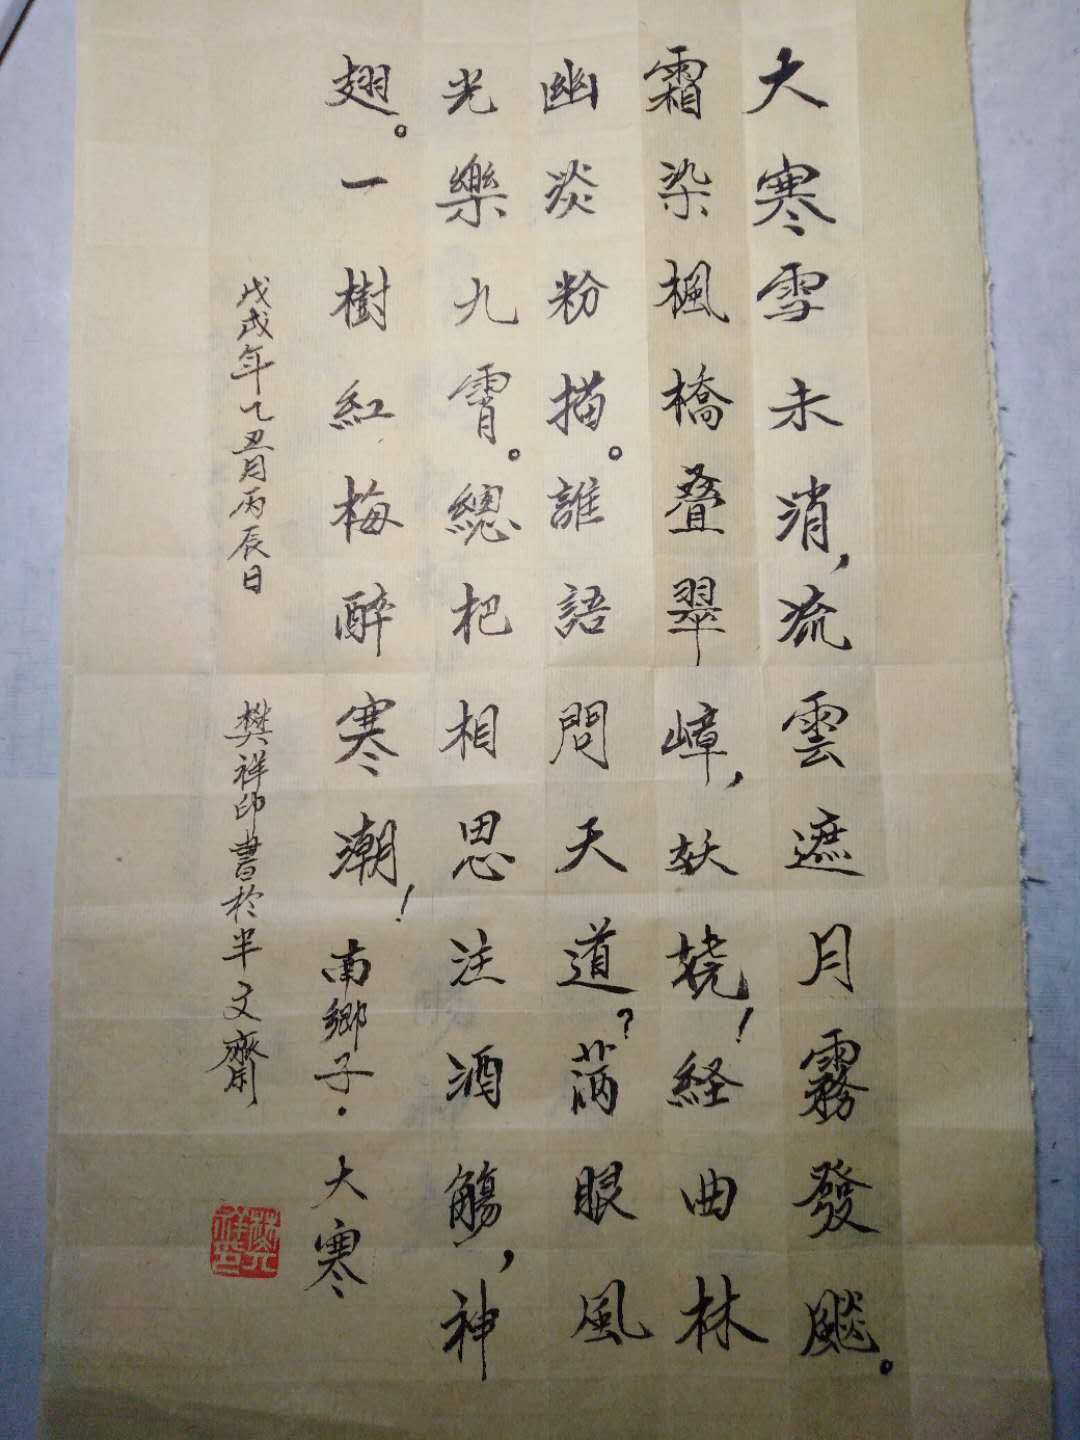 大寒雪未消，流雲遮月霧發飈。
霜染楓橋叠翠嶂，妖娆！経曲林
幽淡粉描。誰語問天道？满眼風
光樂九霄。總把相思注酒觴，神
翅。一樹紅梅醉寒潮！南鄉子·大寒
戊戌年乙丑月丙辰日 樊祥印書於半文齋
樊祥印